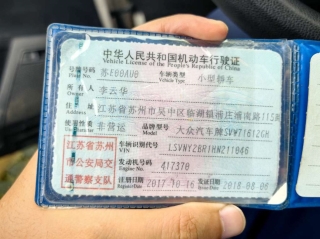 中华人民共和国机动车行驶证
Vehicle License of the People's Republic of China
号牌号码 苏E88AU8 车辆类型 小型轿车
Plate No. Vehicle Type
所有人 李云华
Owner
住址 江苏省苏州市吴中区临湖镇浦庄浦南路115
Address
使用性质 非营运 品牌型号 大众汽车牌SVW71612GH
Use Character Model
江苏省苏州市公安局交通警察支队
车辆识别代号 LSVNY2BR1HN211046
VIN
发动机号码 417370
Engine No.
注册日期 2017-10-16 发证日期 2018-08-08
Register Date Issue Date